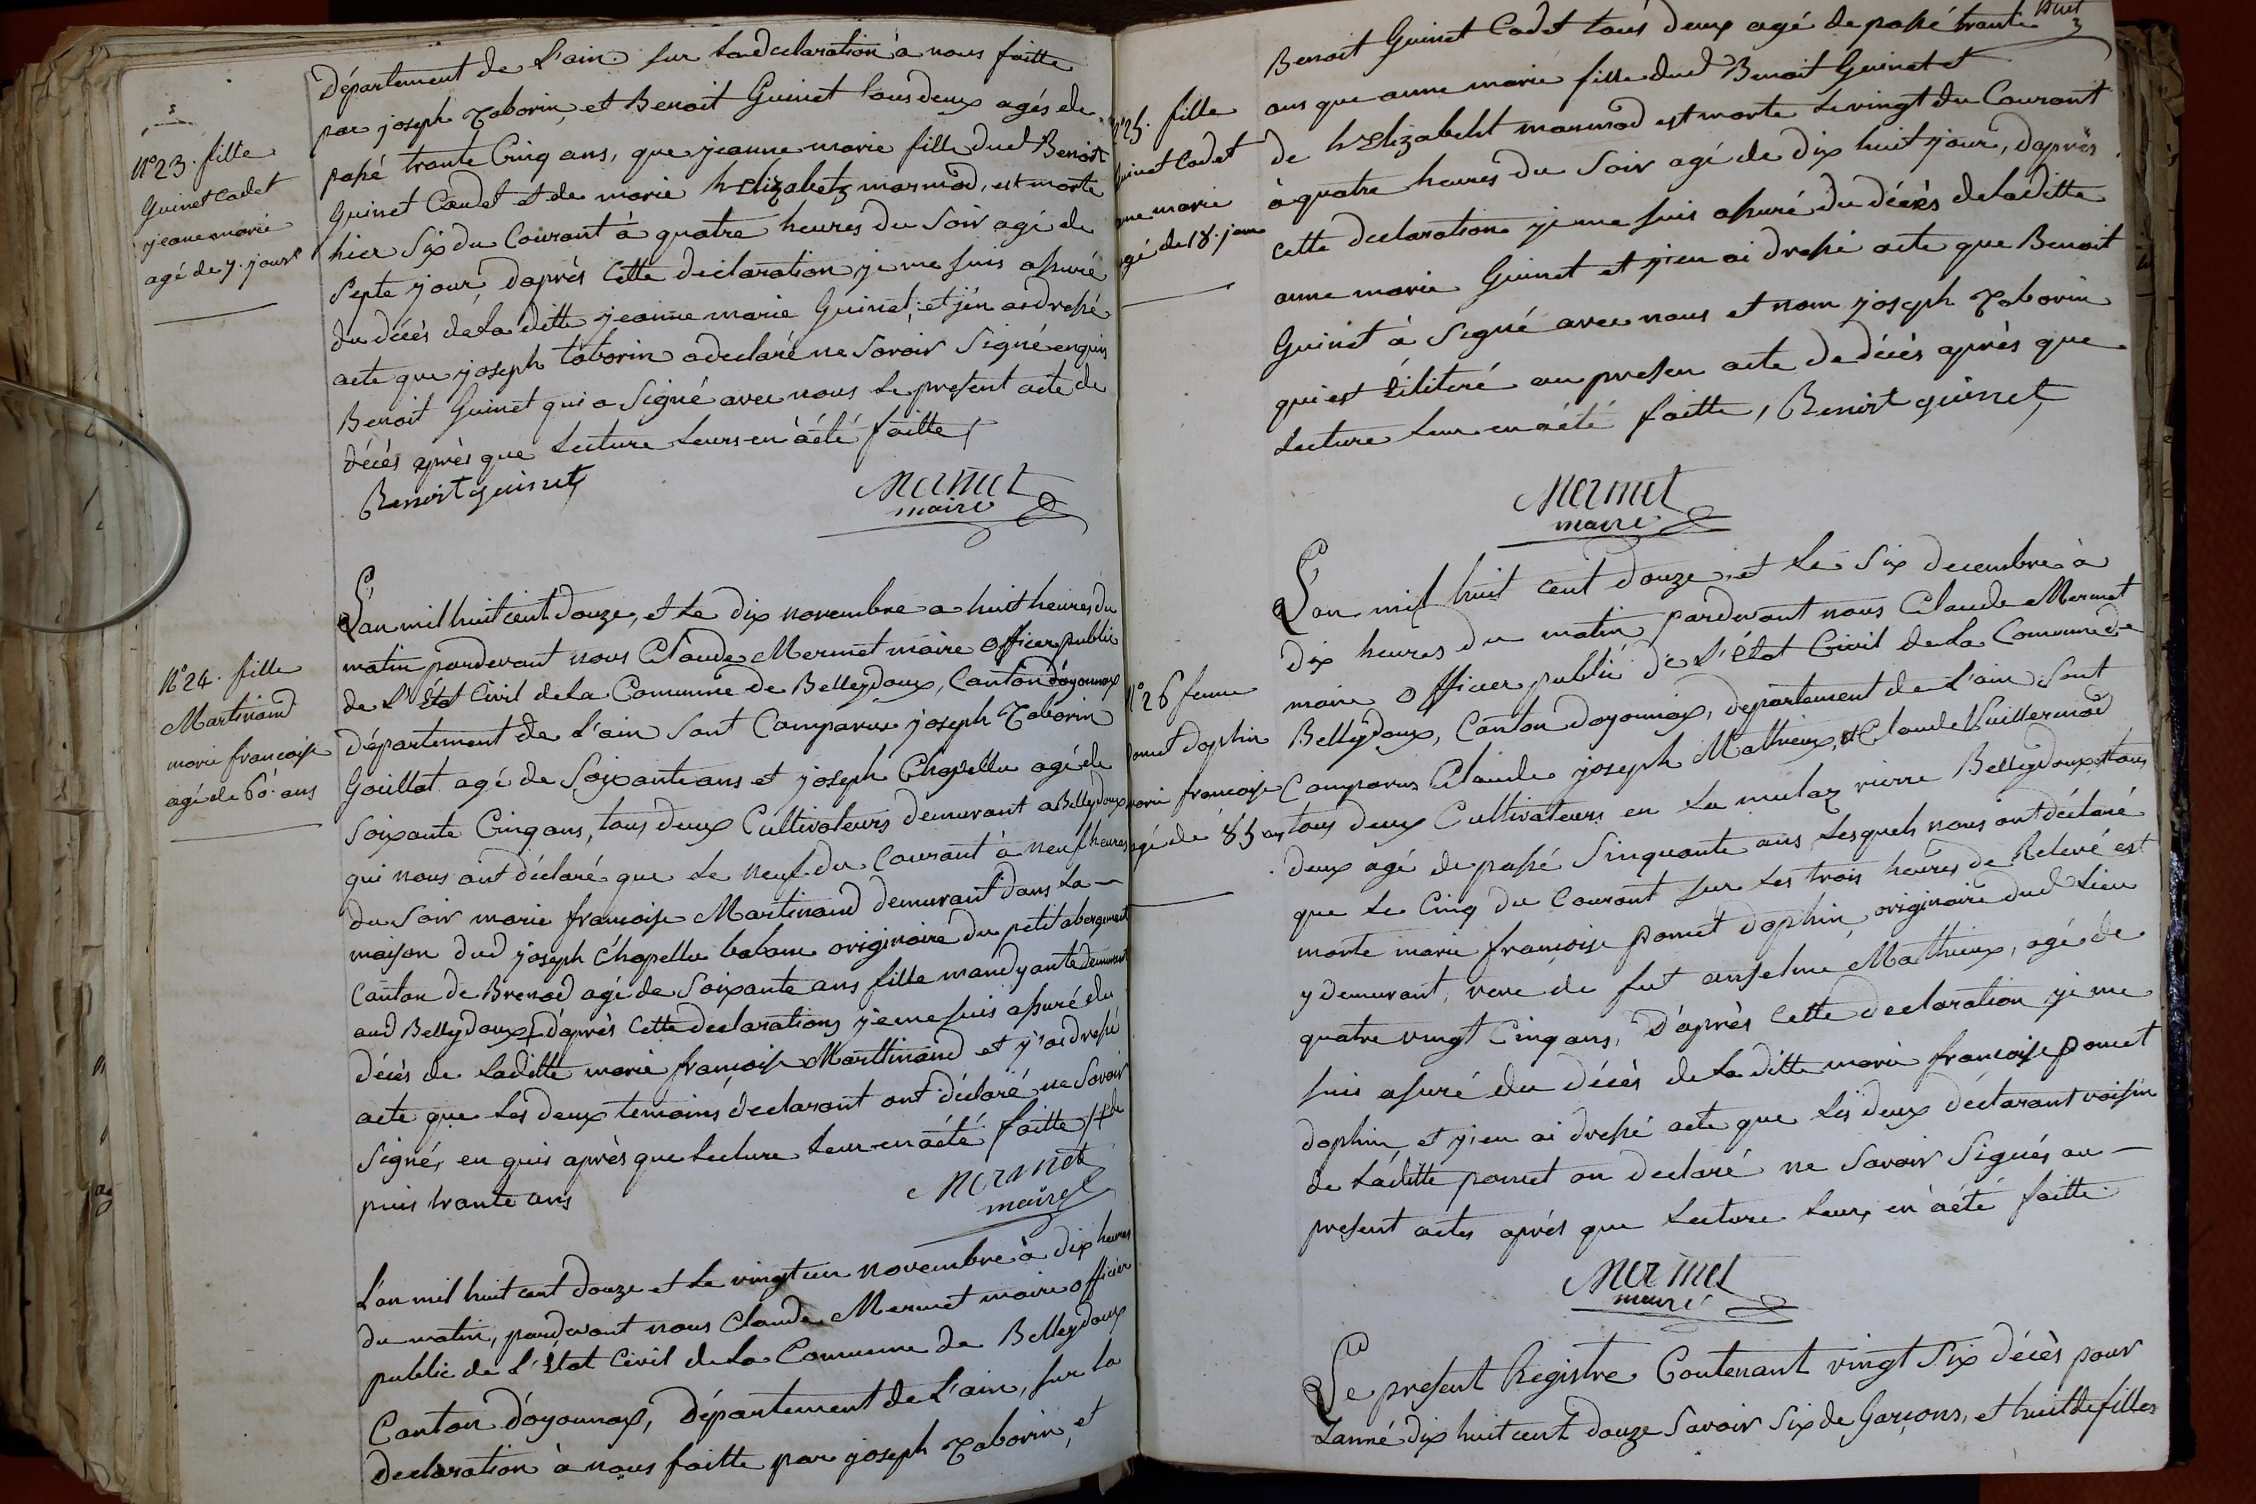 N°23. fille
Guinet Cadet
jeane marie
agé de 7. jours
département de L'ain. sur La déclaration à nous faitte
par joseph Taborin, et Benoit Guinet tous deux agés de
passé trante Cinq ans, que jeanne marie fille dud Benoit
Guinet Caudet et de marie h Elizabetz marmod, est morte
hier Six du Courant à quatre heures du Soir agé de
Septe jour, d'après Cette déclaration je me suis assuré
du décès de La ditte jeanne marie Guinet, et j'en ai dressé
acte que joseph taborin a declaré ne Savoir Signé enquis
Benoit Guinet qui a Signé avec nous Le present acte de
décès après que Lecture Leurs en à été faitte,
Benoit guinet,
Mermet
maire
N°24. fille
Martinand
marie francoise
agé de 60. ans
L'an mil huit cent douze, et Le dix novembre a huit heures du
matin pardevant nous Claude Mermet maire officier public
de L'État Civil de La Comunne de Belleydoux, Canton d'oyonnax
département de L'ain Sont Comparus joseph Taborin
Goüillot agé de Soixante ans et joseph Chapellu agé de
Soixante Cinq ans, tous deux Cultivateurs demurant a Belleydoux
qui nous ont déclaré que Le neuf du Courant à neuf heures
du Soir marie francoise Martinand demurant dans La
maison dud joseph Chapellu balanc originaire du petit abergement
Canton de Brenod agé de Soixante ans fille mandyante demurant
aud Belleydoux, d'après Cette declaration je me suis assuré du
décès de Laditte marie françoise Marttinand et j'ai dressé
acte que Les deux temoins declarant ont déclaré ne Savoir
Signé, en quis après que Lecture Leur en à été faitte, de
puis trante ans
Mermet
maire
L'an mil huit cent douze et Le vingt un novembre à dix heures
du matin, pardevant nous Claude Mermet maire officier
public de L'État Civil de La Comunne de Belleydoux
Canton d'oyonnax, Département de L'ain, sur La
declaration à nous faitte par joseph Taborin, et
huit
N°25. fille
Guinet Cadet
ane marie
agé de 18. jour
Benoit Guinet Cadet tous deux agé de passé trante
ans que anne marie fille dud Benoit Guinet et
de h Elizabeht marmod est morte Le vingt du Courant
à quatre heures du Soir agé de dix huit jour, d'après
Cette declaration je me suis assuré du décès de Laditte
anne marie Guinet et j'en ai dressé acte que Benoit
Guinet à Signé avec nous et nom joseph Taborin
qui est iliteré au presen acte de décès après que
Lecture Leur en à été faitte, Benoit guinet,
Mermet
maire
N°26 femme
Pomet dophin
marie francoise
agé de 85 ans
L'an mil huit cent douze, et Le Six decembre à
dix heures du matin pardevant nous Claude Mermet
maire officier public de L'État Civil de La Comunne de
Belleydoux, Canton doyonnax, departement de L'ain Sont
Comparus Claude joseph Mathieux, et Claude Vuillermod
tous deux Cultivateurs en La mulaz rierre Belleydoux tous
deux agé de passé Sinquante ans Lesquels nous ont déclaré
que Le Cinq du Courant sur Les trois heures de Relevé est
morte marie françoise pomet dophin, originaire dud Lieu
y demurant, veve de fut anselme Mathieux, agé de
quatre vingt Cinq ans, D'après Cette declaration je me
suis assuré du décès de La ditte marie françoise pomet
dophin, et j'en ai dressé acte que Les deux déclarant voisin
de Laditte pomet on declaré ne Savoir Signés au
present actes après que Lecture Leurs en à été faitte.
Mermet
maire
Le present Registre Contenant vingt Six décès pour
Lanné dix huit cent douze Savoir Six de Garçons, et huit de filles